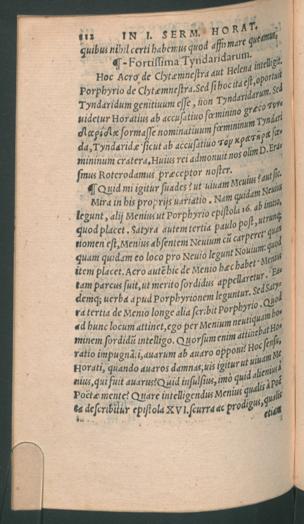 112 IN I. SERM. HORAT.
quibus nihil certi habemus quod affirmare queamus.
¶ - Fortissima Tyndaridarum.
Hoc Acro de Clytæmnestra aut Helena intelligit.
Porphyrio de Clytæmnestra. Sed si hoc ita est, oportuit
Tyndaridum genitiuum esse, non Tyndaridarum. Sed
uidetur Horatius ab accusatiuo fœminino græco
formasse nominatiuum fœmininum Tyndari
da, Tyndaridæ sicut ab accusatiuo τὸν κρατῆρα
mininum cratera, Huius rei admonuit nos olim D. Eras
mus Roterodamus præceptor noster.
¶ Quid mi igitur suades? ut uiuam Meuius? aut sic.
Mira in his proprijs uariatio. Nam quidam Neuius
legunt, alij Menius ut Porphyrio epistola 16. ab initio,
quod placet. Satyra autem tertia paulo post, utrunq;
nomen est, Menius absentem Neuium cũ carperet quan
quam quidam eo loco pro Neuio legunt Nouium: quod
item placet. Acro autẽ hic de Menio hæc habet. Menius
tam parcus fuit, ut merito sordidus appellaretur. Ea
demq; uerba apud Porphyrionem leguntur. Sed Saty
ra tertia de Menio longe alia scribit Porphyrio. Quod
ad hunc locum attinet, ego per Menium neutiquam ho
minem sordidũ intelligo. Quorsum enim attinebat Ho
ratio impugnãti, auarum ab auaro opponi? Hoc sensu,
Horati, quando auaros damnas, uis igitur ut uiuam Me
nius, qui fuit auarus? Quid insulsius, imò quid alienius à
Poëtæ mente? Quare intelligendus Menius qualis à Poë
ta describitur epistola XVI. scurra ac prodigus, qualis
etiam